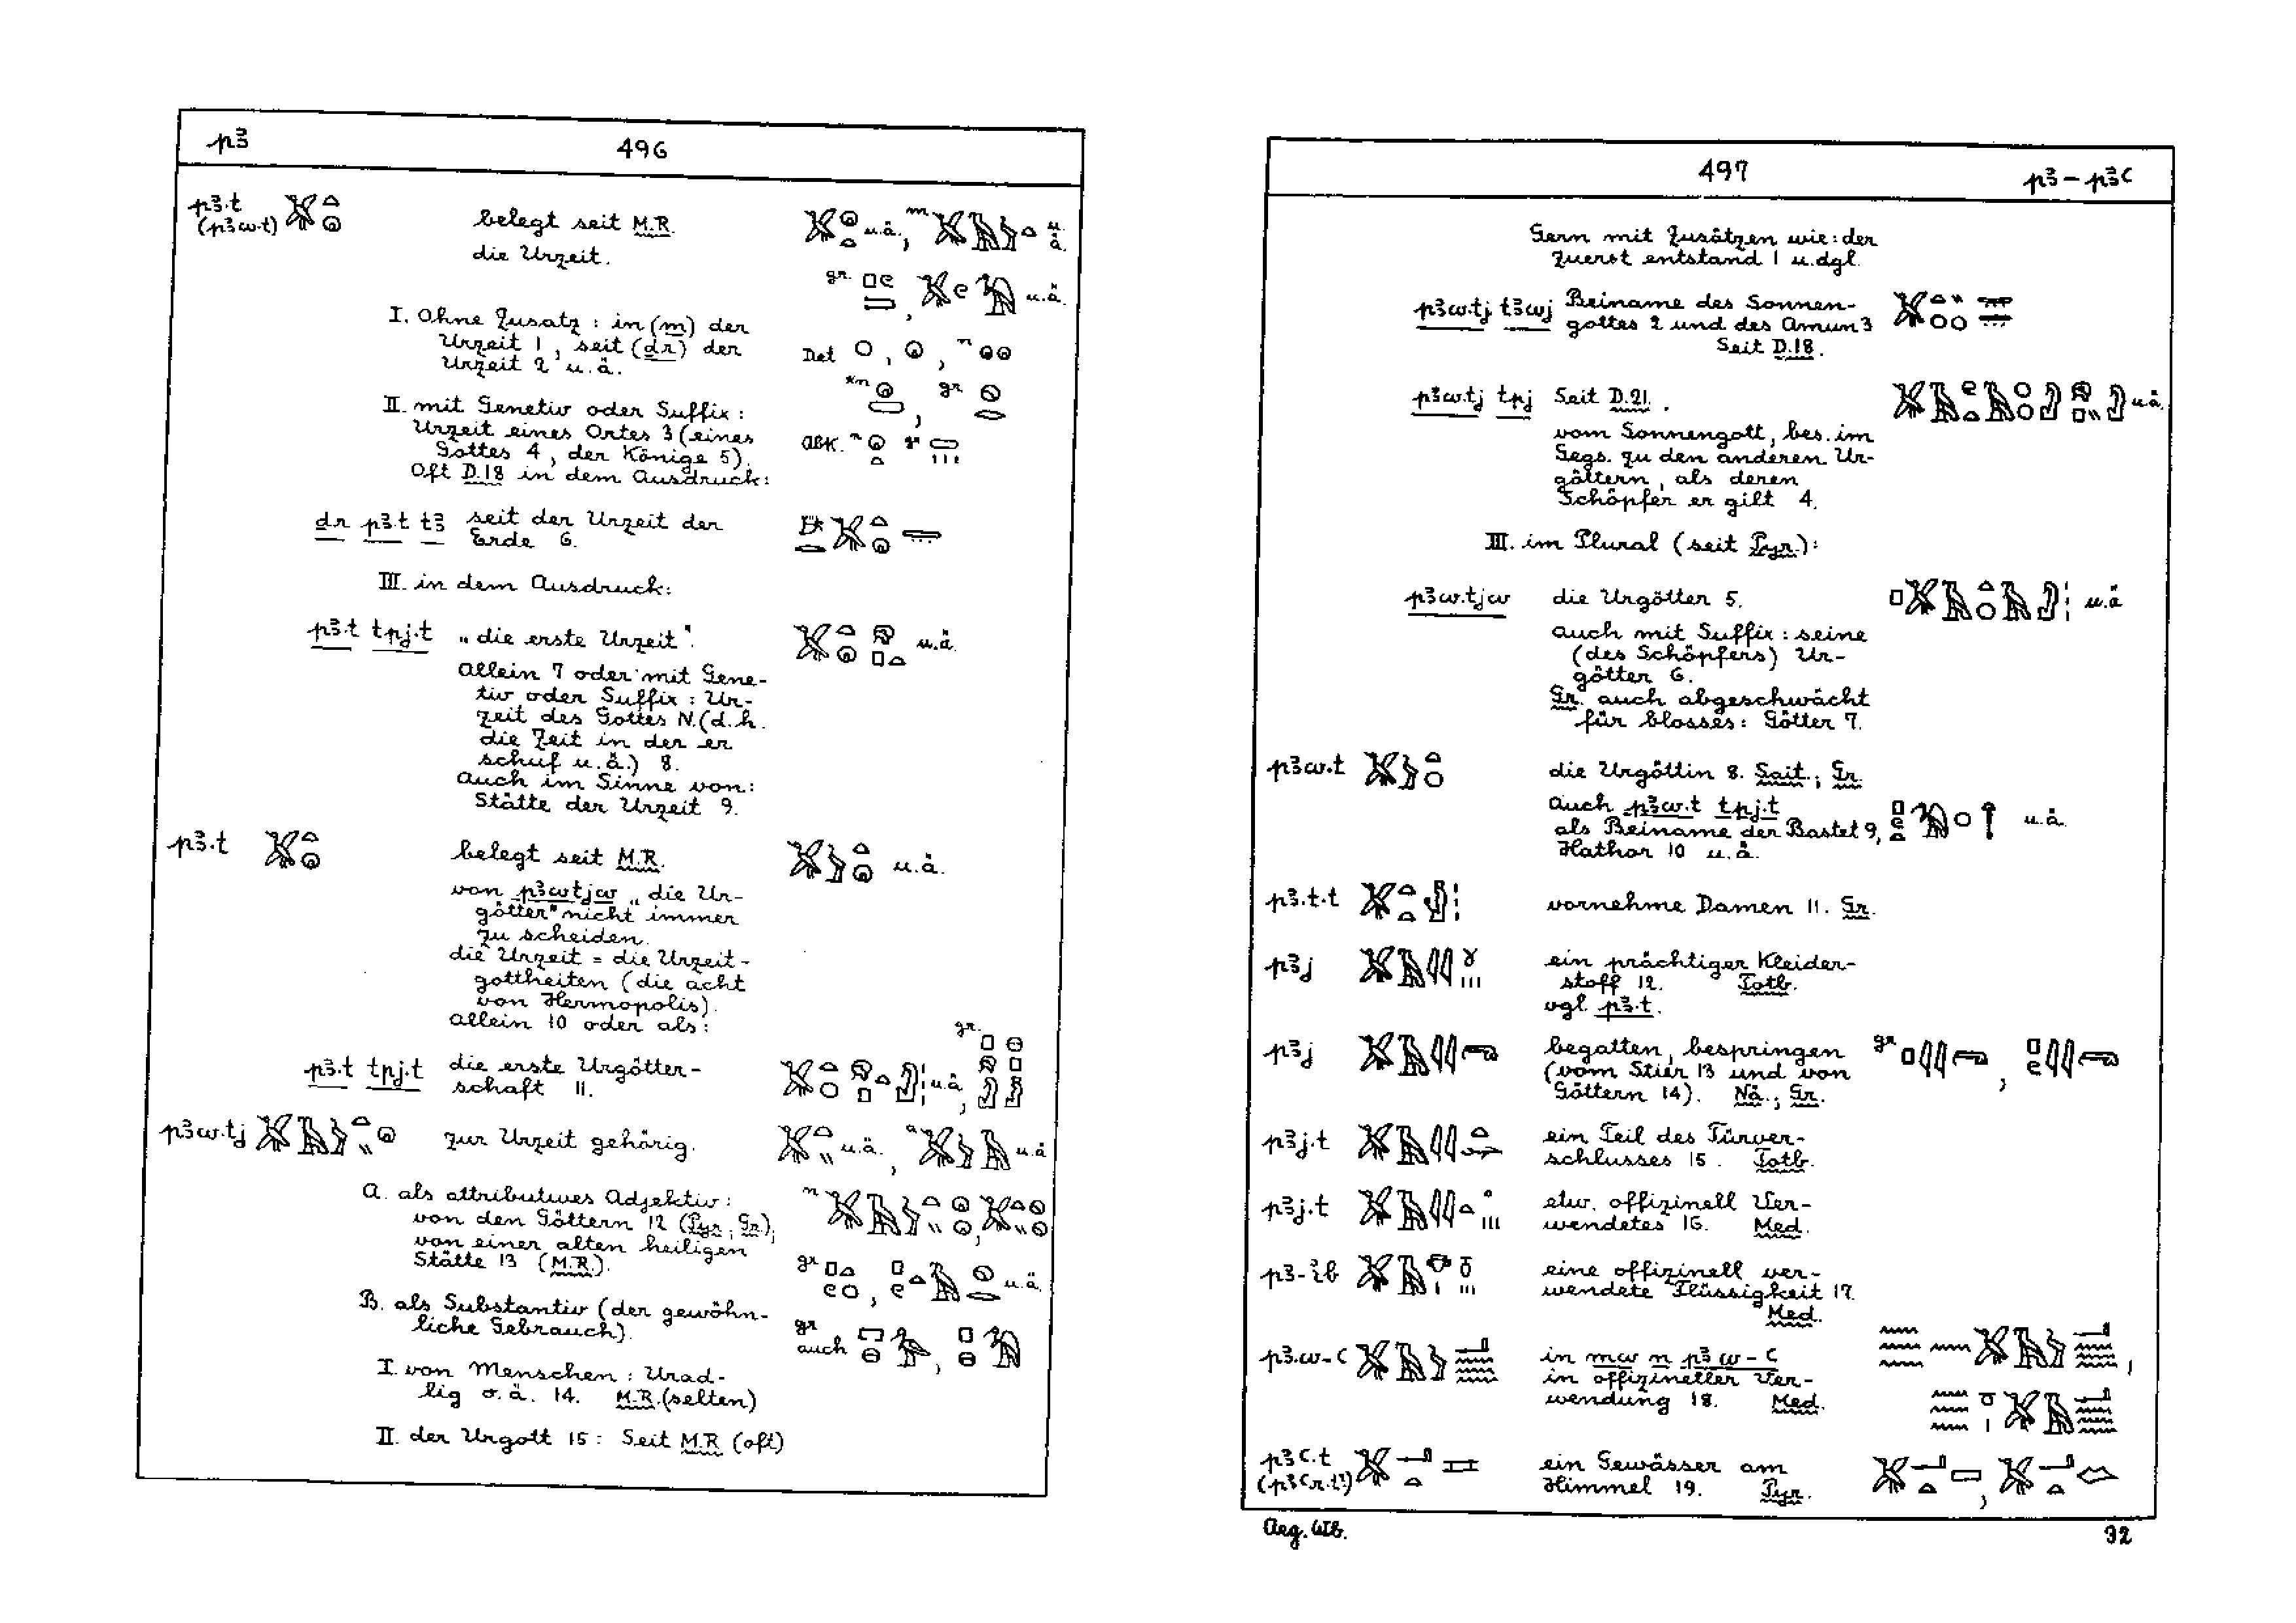 pꜣ 496
pꜣ.t
(pꜣw.t)
belegt seit M.R.
u.ä., m u.ä.
die Urzeit.
gr. , u.ä.
I. Ohne Zusatz : in (m) der
Urzeit 1, seit (dr) der
Urzeit 2 u.ä.
Det , , n
kn , gr.
II. mit Genetiv oder Suffix :
Urzeit eines Ortes 3 (eines
Gottes 4, der Könige 5).
Oft D.18 in dem Ausdruck:
Abk. n gr
dr pꜣ.t tꜣ seit der Urzeit der
Erde 6.
III. in dem Ausdruck:
pꜣ.t tpj.t „die erste Urzeit". u.ä.
Allein 7 oder mit Gene-
tiv oder Suffix : Ur-
zeit des Gottes N. (d.h.
die Zeit in der er
schuf u.ä.) 8.
Auch im Sinne von:
Stätte der Urzeit 9.
pꜣ.t belegt seit M.R. u.ä.
von pꜣwtjw „die Ur-
götter" nicht immer
zu scheiden.
die Urzeit = die Urzeit-
gottheiten (die acht
von Hermopolis).
Allein 10 oder als:
gr.
pꜣ.t tpj.t die erste Urgötter-
schaft 11. u.ä.,
pꜣw.tj zur Urzeit gehörig. u.ä., a u.ä
A. als attributives Adjektiv :
von den Göttern 12 (Pyr.; Gr.),
von einer alten heiligen
Stätte 13 (M.R.).
n ,
gr , u.ä.
B. als Substantiv (der gewöhn-
liche Gebrauch).
gr
auch ,
I. von Menschen : Urad-
lig o.ä. 14. M.R. (selten)
II. der Urgott 15 : Seit M.R. (oft)
497 pꜣ – pꜣꜥ
Gern mit Zusätzen wie : der
zuerst entstand 1 u.dgl.
pꜣw.tj tꜣwj Beiname des Sonnen-
gottes 2 und des Amun 3
Seit D.18.
pꜣw.tj tpj Seit D.21. u.ä.
vom Sonnengott, bes. im
Gegs. zu den anderen Ur-
göttern, als deren
Schöpfer er gilt 4.
III. im Plural (seit Pyr.):
pꜣw.tjw die Urgötter 5. u.ä
auch mit Suffix : seine
(des Schöpfers) Ur-
götter 6.
Gr. auch abgeschwächt
für blosses: Götter 7.
pꜣw.t die Urgöttin 8. Sait.; Gr.
auch pꜣw.t tpj.t
als Beiname der Bastet 9, u.ä.
Hathor 10 u.ä.
pꜣ.t.t vornehme Damen 11. Gr.
pꜣj ein prächtiger Kleider-
stoff 12. Totb.
vgl. pꜣ.t.
pꜣj begatten, bespringen
(vom Stier 13 und von
Göttern 14). Nä.; Gr.
gr ,
pꜣj.t ein Teil des Türver-
schlusses 15. Totb.
pꜣj.t etw. offizinell Ver-
wendetes 16. Med.
pꜣ-ꞽb eine offizinell ver-
wendete Flüssigkeit 17.
Med.
pꜣ.w-ꜥ in mw n pꜣw-ꜥ
in offizineller Ver-
wendung 18. Med.
pꜣꜥ.t
(pꜣꜥr.t?)
ein Gewässer am
Himmel 19. Pyr.
Aeg. Wb. 32